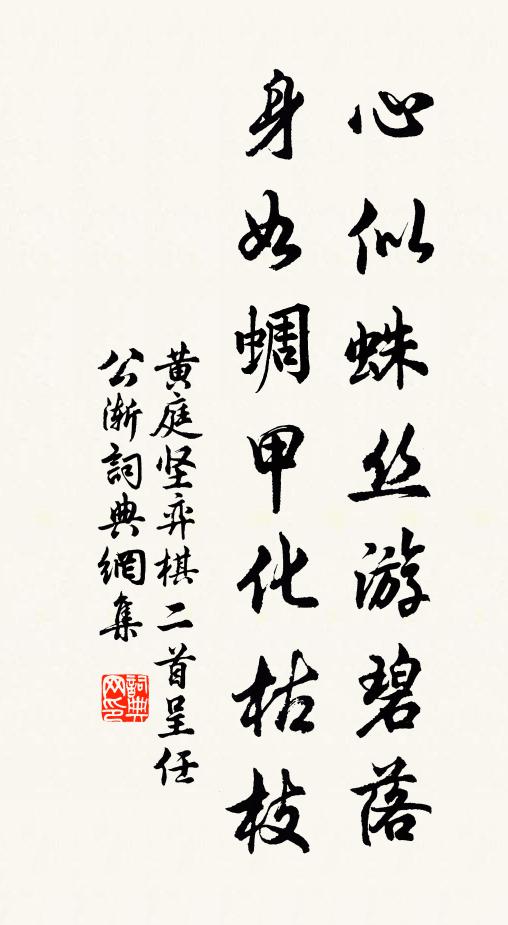 心似蛛丝游碧落
身如蜩甲化枯枝
黄庭坚弈棋二首呈任
公渐词典網集
詞典
网印